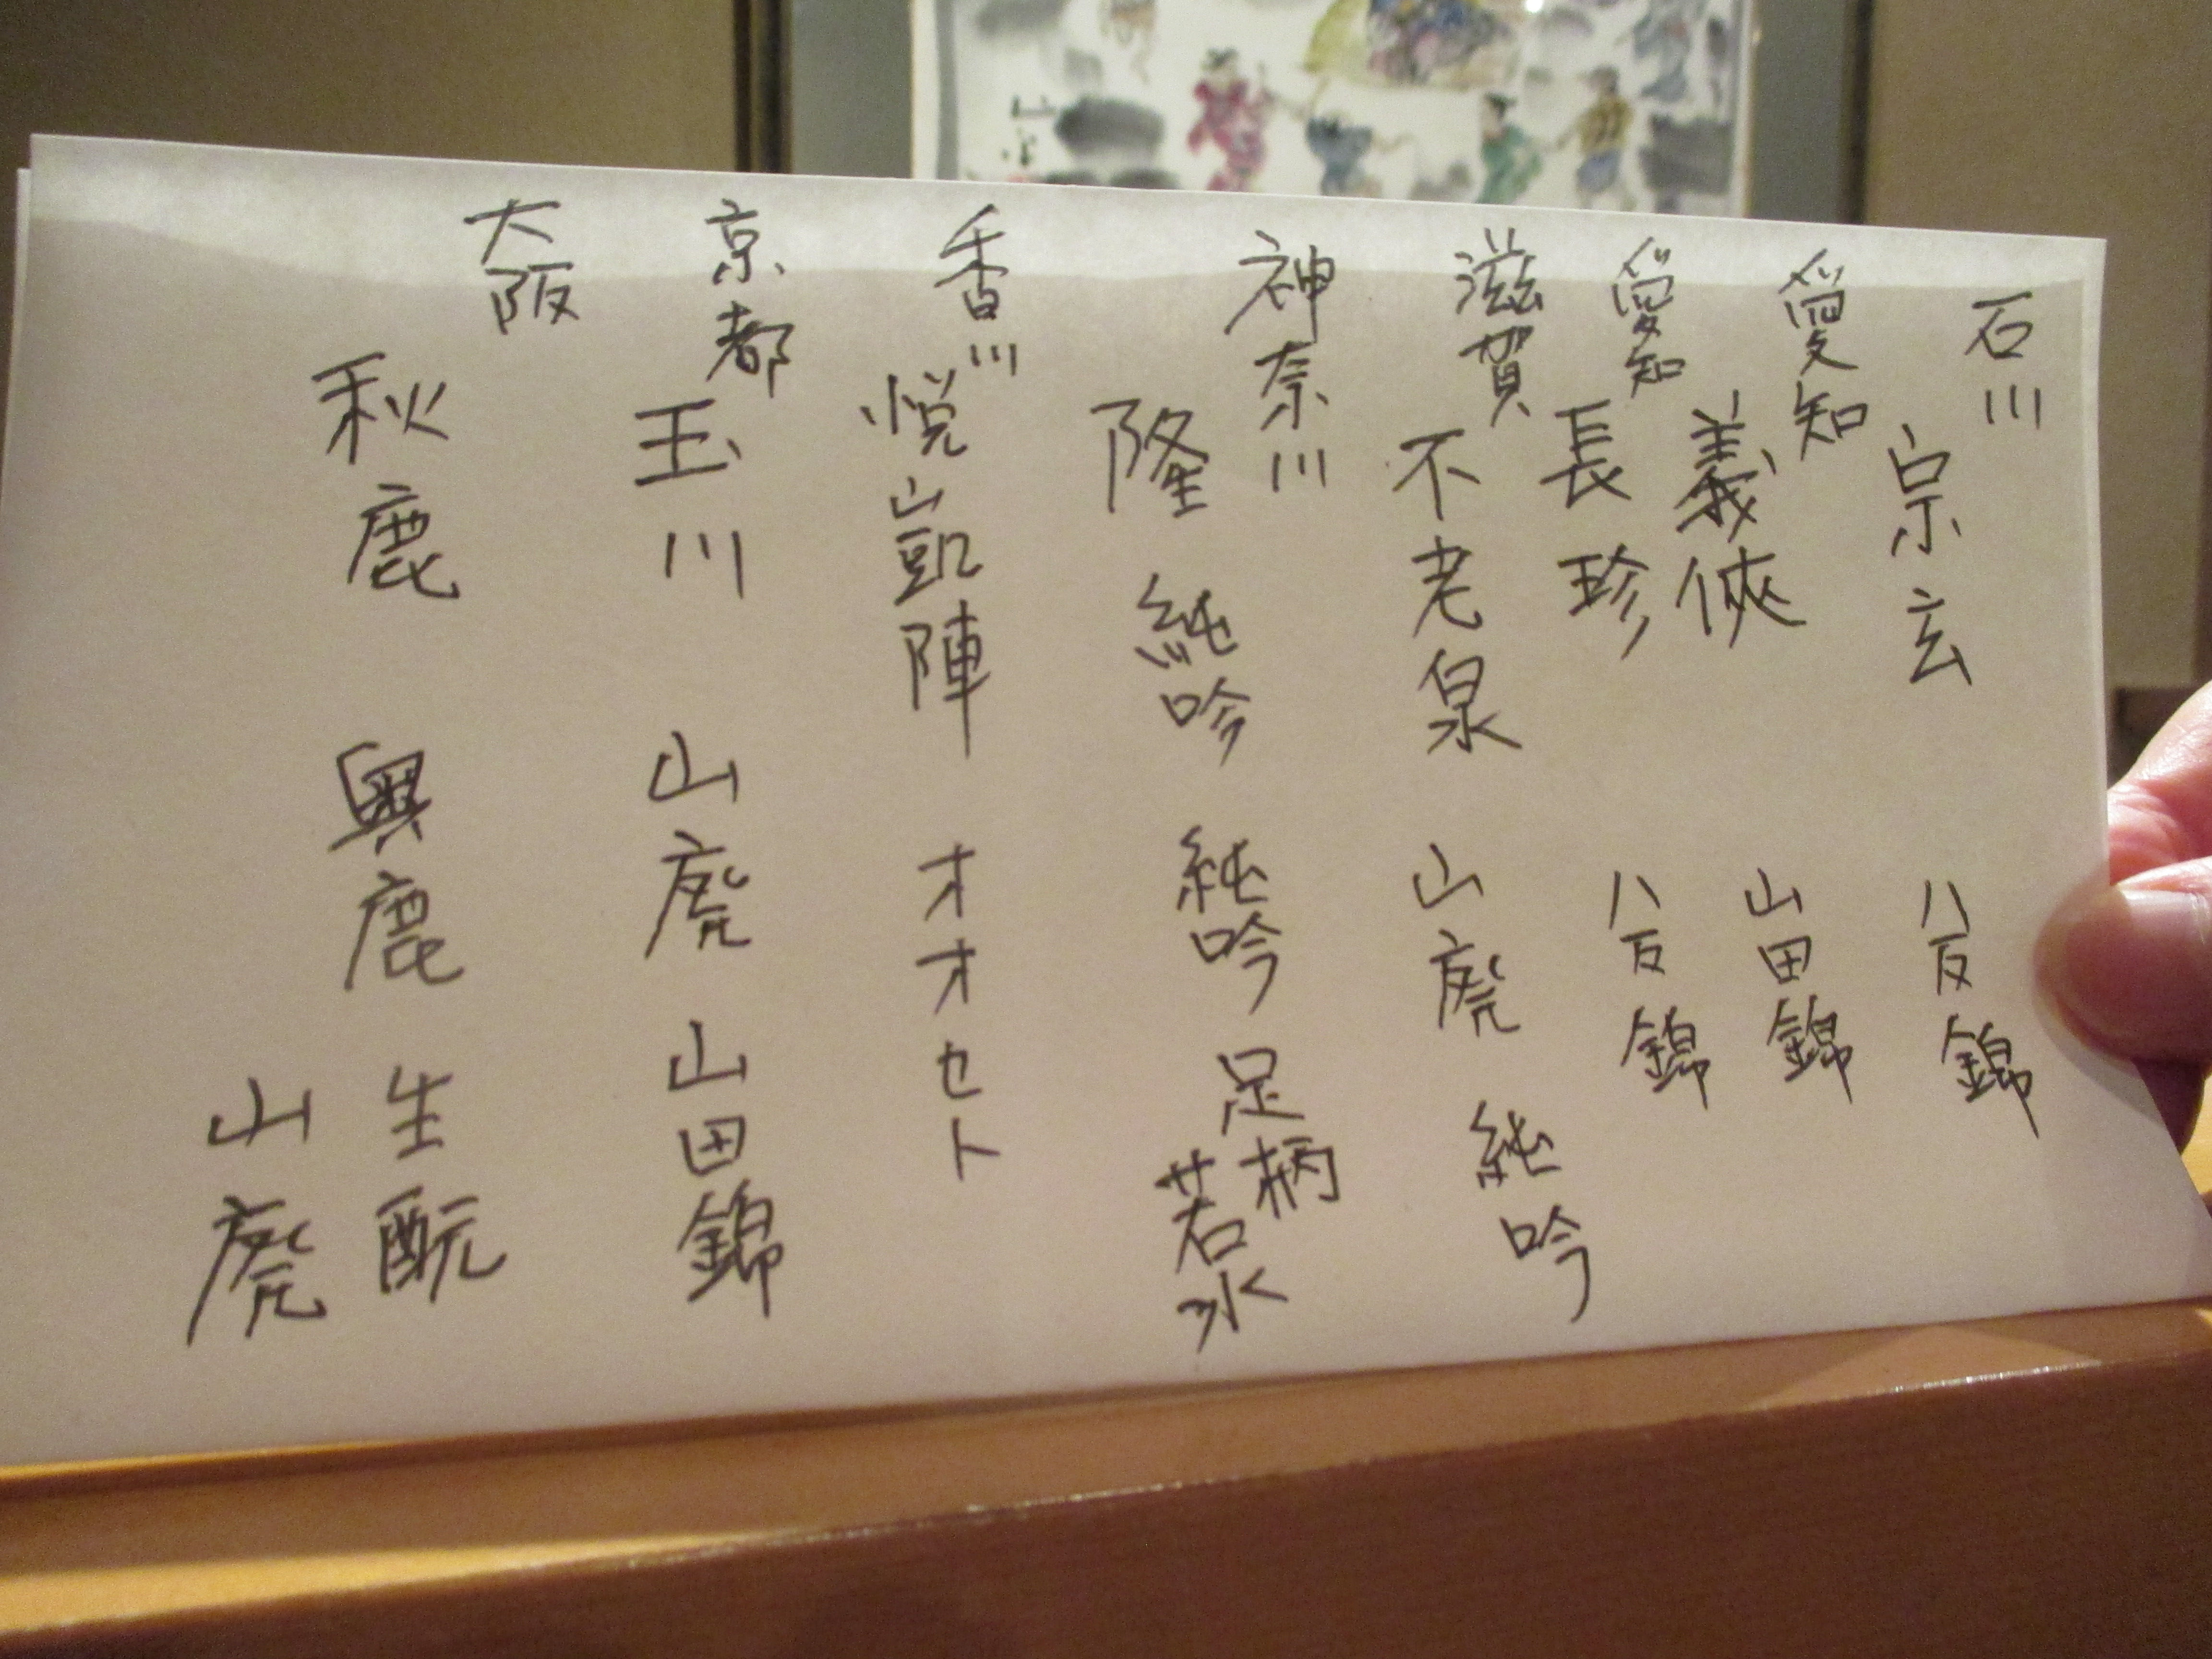 石川 宗玄 八反錦
愛知 義侠 山田錦
愛知 長珍 八反錦
滋賀 不老泉 山廃 純吟
神奈川 隆 純吟 純吟 足柄若水
香川 悦凱陣 オオセト
京都 玉川 山廃 山田錦
大阪 秋鹿 奥鹿 生酛
山廃